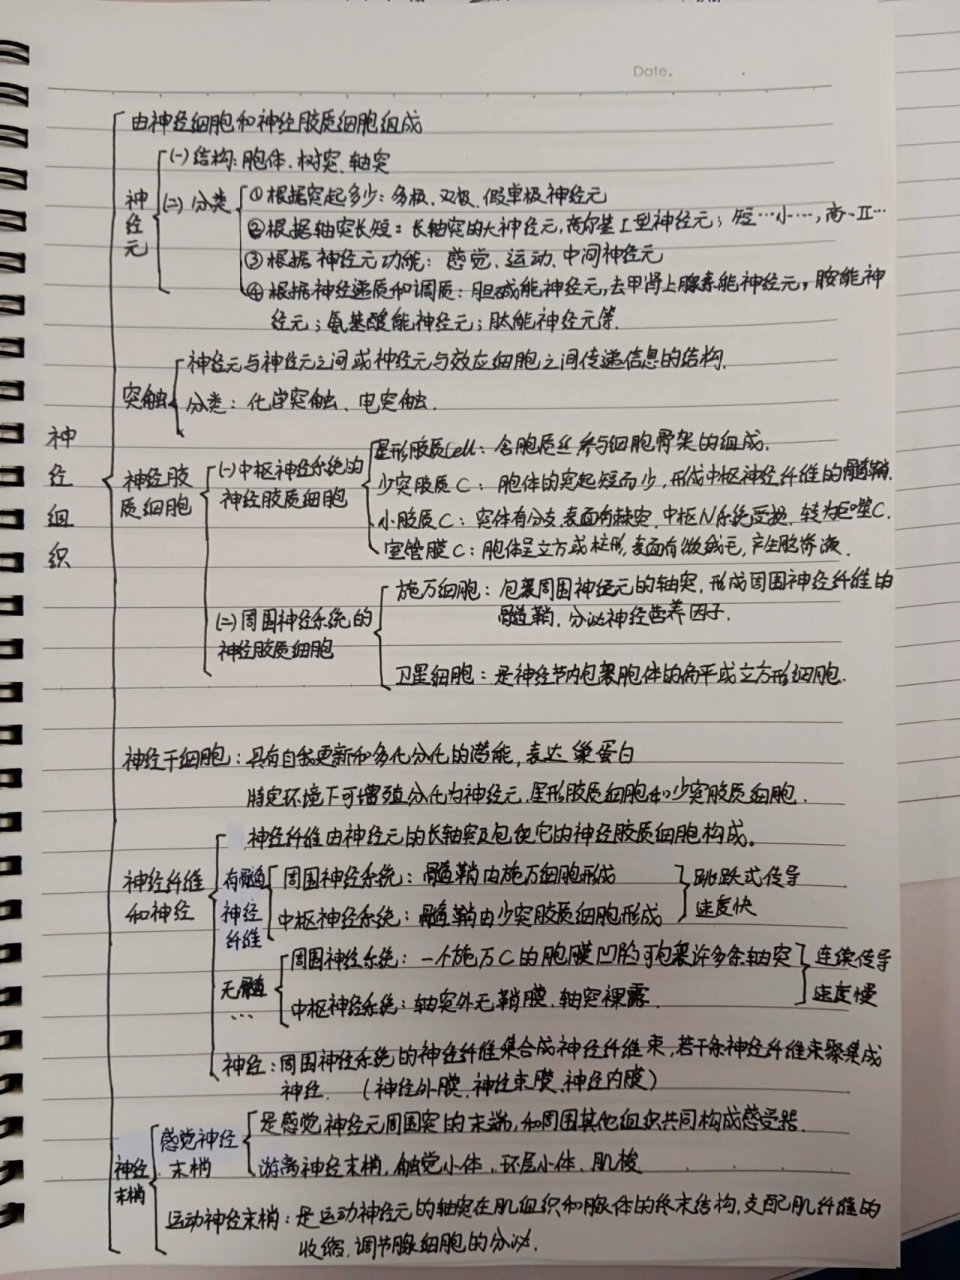 Date.
由神经细胞和神经胶质细胞组成
神经元
(一)结构:胞体、树突、轴突
(二)分类
①根据突起多少:多极、双极、假单极神经元
②根据轴突长短:长轴突的大神经元,高尔基I型神经元;短…小…,高…II…
③根据神经元功能:感觉、运动、中间神经元
④根据神经递质和调质:胆碱能神经元,去甲肾上腺素能神经元,胺能神
经元;氨基酸能神经元;肽能神经元等.
突触
神经元与神经元之间或神经元与效应细胞之间传递信息的结构.
分类:化学突触、电突触.
神经组织
神经胶
质细胞
(一)中枢神经系统的
神经胶质细胞
星形胶质Cell:含胞质丝参与细胞骨架的组成.
少突胶质C:胞体的突起短而少,形成中枢神经纤维的髓鞘.
小胶质C:突体有分支,表面有棘突,中枢N系统受损,转为巨噬C.
室管膜C:胞体呈立方或柱形,表面有微绒毛,产生脑脊液.
(二)周围神经系统的
神经胶质细胞
施万细胞:包裹周围神经元的轴突,形成周围神经纤维的
髓鞘,分泌神经营养因子.
卫星细胞:是神经节内包裹胞体的扁平或立方形细胞.
神经干细胞:具有自我更新和多化分化的潜能,表达巢蛋白
特定环境下可增殖分化为神经元、星形胶质细胞和少突胶质细胞.
神经纤维
和神经
神经纤维由神经元的长轴突及包绕它的神经胶质细胞构成。
有髓
神经
纤维
周围神经系统:髓鞘由施万细胞形成
中枢神经系统:髓鞘由少突胶质细胞形成
跳跃式传导
速度快
无髓
…
周围神经系统:一个施万C的胞膜凹陷可包裹许多条轴突
中枢神经系统:轴突外无鞘膜,轴突裸露.
连续传导
速度慢
神经:周围神经系统的神经纤维集合成神经纤维束,若干条神经纤维束聚集成
神经.(神经外膜、神经束膜、神经内膜)
神经
末梢
感觉神经
末梢
是感觉神经元周围突的末端,和周围其他组织共同构成感受器.
游离神经末梢,触觉小体、环层小体、肌梭
运动神经末梢:是运动神经元的轴突在肌组织和腺体的终末结构,支配肌纤维的
收缩,调节腺细胞的分泌.